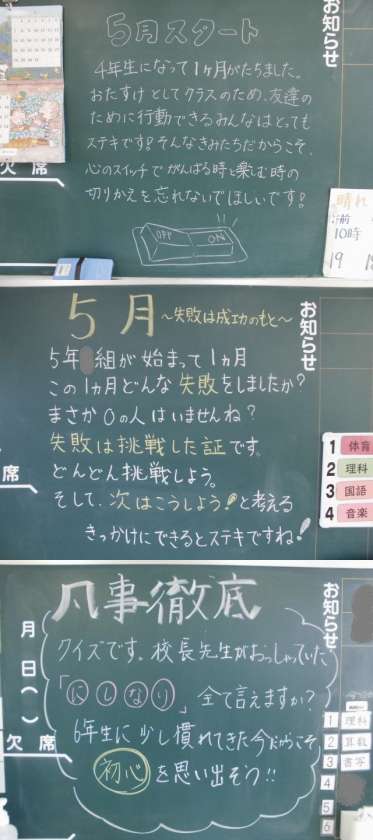 5月スタート
4年生になって1ヶ月がたちました。
おたすけとしてクラスのため、友達の
ために行動できるみんなはとっても
ステキです!そんなきみたちだからこそ、
心のスイッチでがんばる時と楽しむ時の
切りかえを忘れないでほしいです!
OFF ON
お知らせ
欠席
晴れ
10時
19
5月
~失敗は成功のもと~
5年 組が始まって1ヵ月
この1ヵ月どんな失敗をしましたか?
まさか0の人はいませんね?
失敗は挑戦した証です。
どんどん挑戦しよう。
そして、次はこうしよう!と考える
きっかけにできるとステキですね!
お知らせ
席
1 体育
2 理科
3 国語
4 音楽
凡事徹底
クイズです。校長先生がおっしゃっていた
「にしなり」全て言えますか?
6年生に少し慣れてきた今だからこそ
初心を思い出そう!!
月
日
( )
欠席
お知らせ
1 理科
2 算数
3 書写
4
5
6